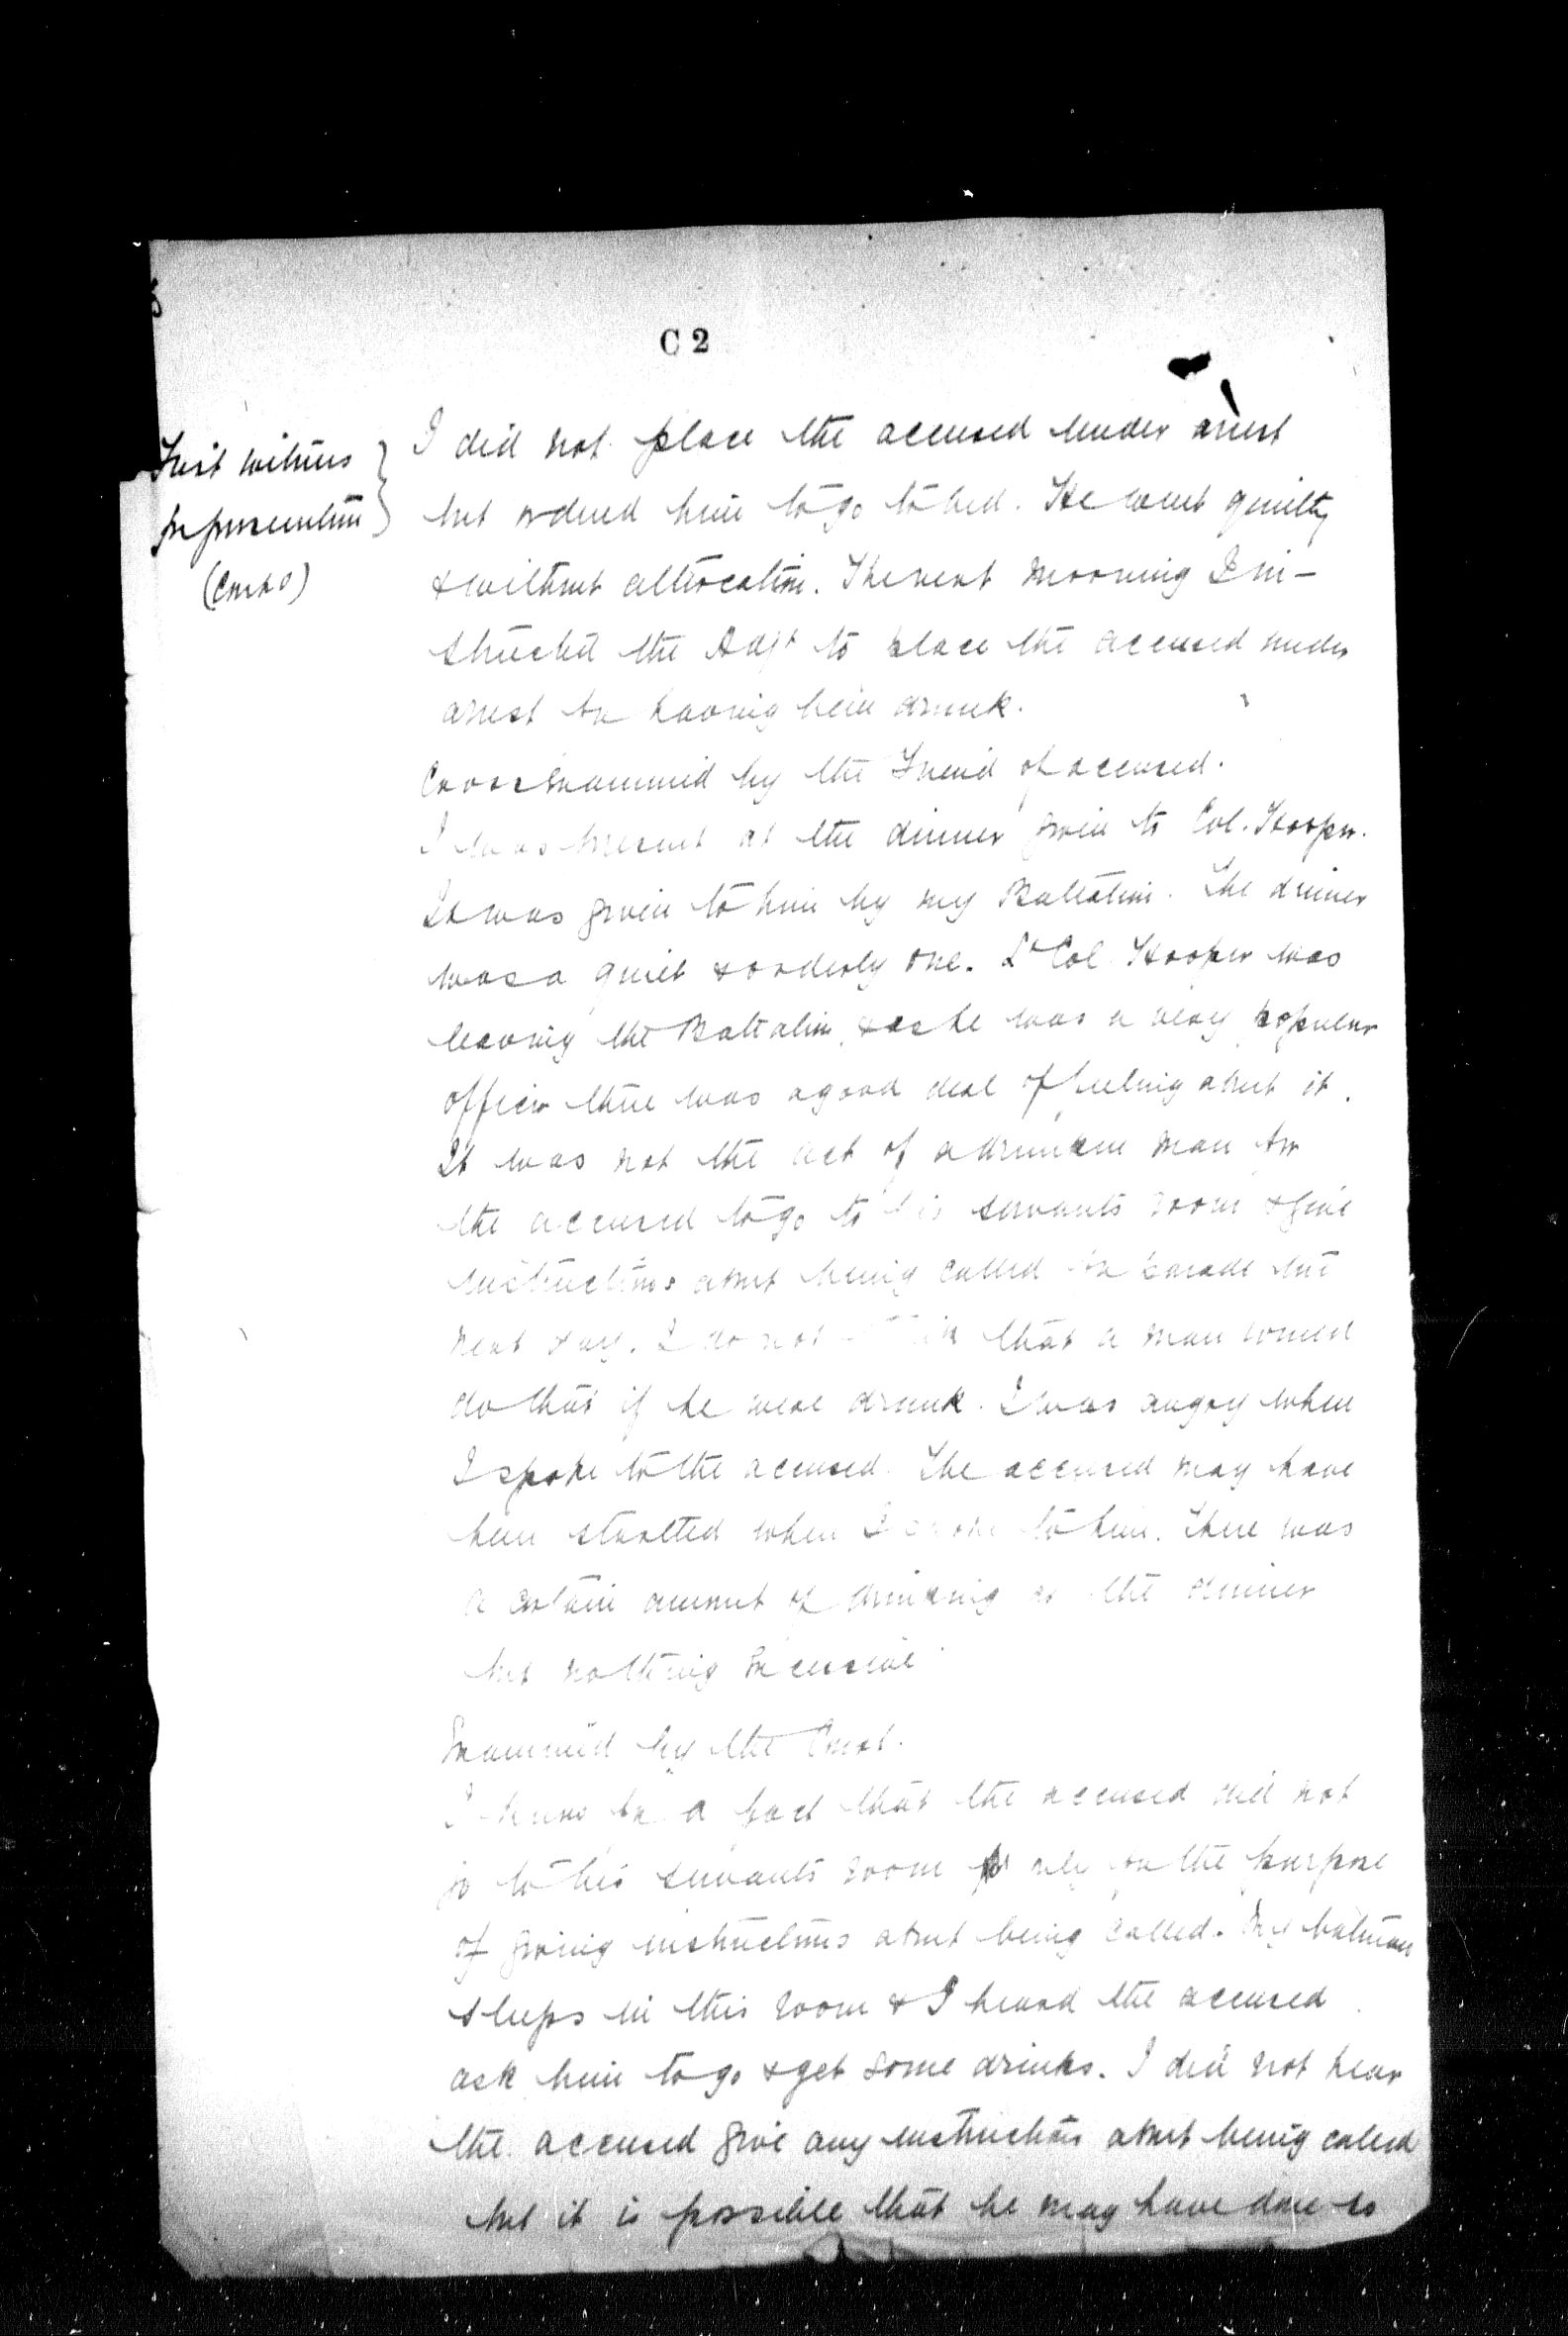 C 2
First witness
for prosecution
(Contd)
I did not place the accused under arrest
but ordered him to go to bed. He went quietly
& without altercation. The next morning I in-
structed the Adjt to place the accused under
arrest for having been drunk.
Cross examined by the Friend of accused.
I was present at the dinner given to Col. Hooper.
It was given to him by my Battalion. The dinner
was a quiet & orderly one. Lt Col. Hooper was
leaving the Battalion, & as he was a very popular
officer there was a good deal of feeling about it.
It was not the act of a drunken man for
the accused to go to his servants room & give
instructions about being called for parade the
next day. I do not that a man would
do that if he were drunk. I was angry when
I spoke to the accused. The accused may have
been startled when I spoke to him. There was
a certain amount of drinking at the dinner
but nothing excessive.
Examined by the Court.
I know for a fact that the accused did not
go to his servants room only for the purpose
of giving instructions about being called. My batman
sleeps in this room & I heard the accused
ask him to go & get some drinks. I did not hear
the accused give any instructions about being called
but it is possible that he may have done so